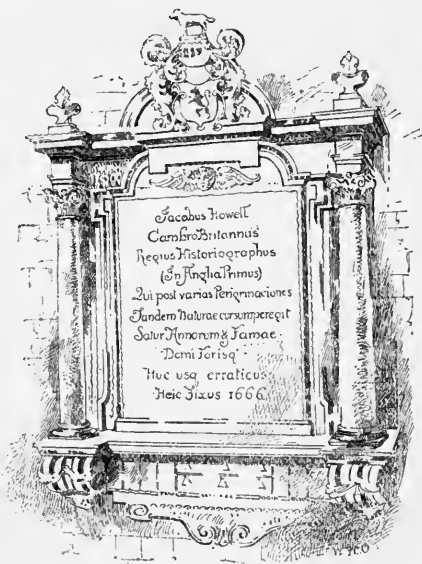 Jacobus Howell
CambroBritannus
Regius Historiographus
(In Anglia Primus)
Qui post varias Perigrinaciones
Tandem Naturae cursum peregit
Satur Annorum & Famae
Domi Forisq
Huc usq erraticus
Heic Fixus 1666